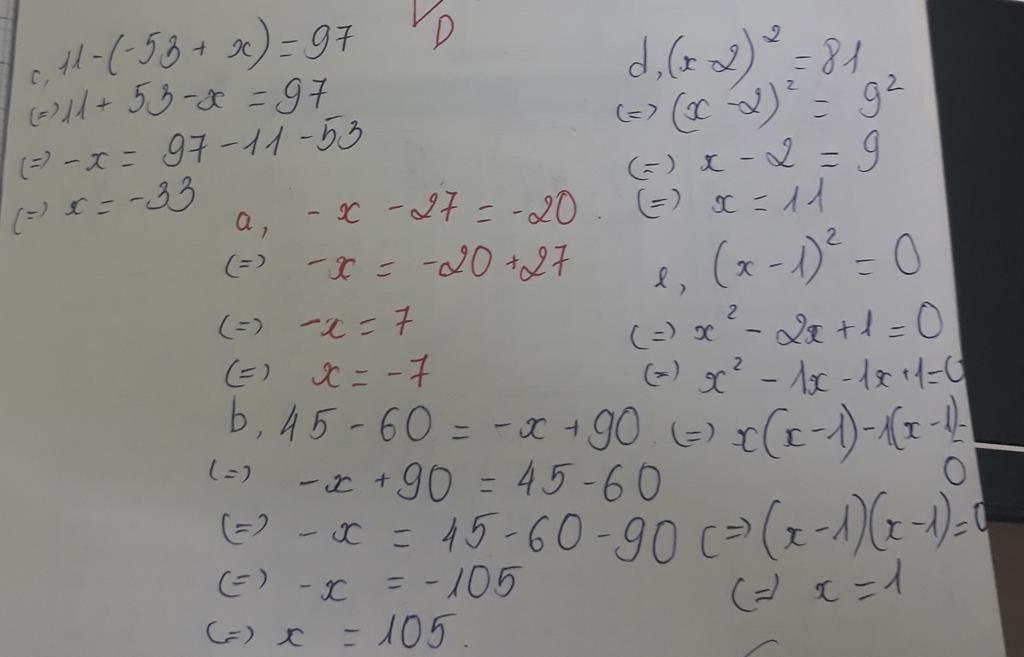 D
c, 11-(-53 + x) = 97
(=) 11 + 53 - x = 97
(=) -x = 97 - 11 - 53
(=) x = -33
a, -x - 27 = -20.
(=) -x = -20 + 27
(=) -x = 7
(=) x = -7
b, 45 - 60 = -x + 90.
(=) -x + 90 = 45 - 60
(=) -x = 45 - 60 - 90
(=) -x = -105
(=) x = 105.
d, (x - 2)² = 81
(=) (x - 2)² = 9²
(=) x - 2 = 9
(=) x = 11
e, (x - 1)² = 0
(=) x² - 2x + 1 = 0
(=) x² - 1x - 1x + 1 = 0
(=) x(x - 1) - 1(x - 1) =
0
(=) (x - 1)(x - 1) = 0
(=) x = 1